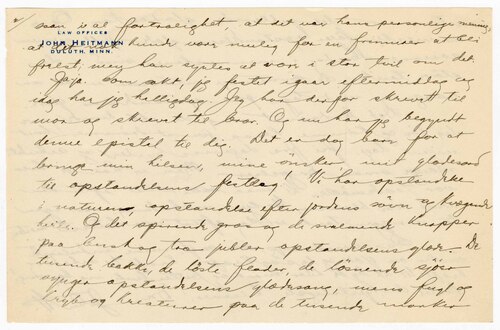 2/
LAW OFFICES
JOHN HEITMANN
DULUTH, MINN.
saan i al fortrolighet, at det var hans personlige mening
at det kunde være mulig for en frimurer at bli
frelst, men han syntes at være i stor tvil om det.
Jaja, som sakt, jeg festet igaar eftermiddag og
idag har jeg helligdag. Jeg har derfor skrevet til
mor og skrevet til bror. Og nu har jeg begyndt
denne epistel til dig. Det er dog bare for at
bringe min hilsen, mine ønsker mit glædesord
til opstandelsens festdag! Vi har opstandelse
i naturen, opstandelse efter jordens søvn og
hvile. Og det spirende græs og de svulmende knapper
paa busk og træ jubler opstandelsens glæde. De
bække, de løste floder, de sjøer
opstandelsens glædesang, mens fugl og
kryb og kreaturer paa de tusende marker